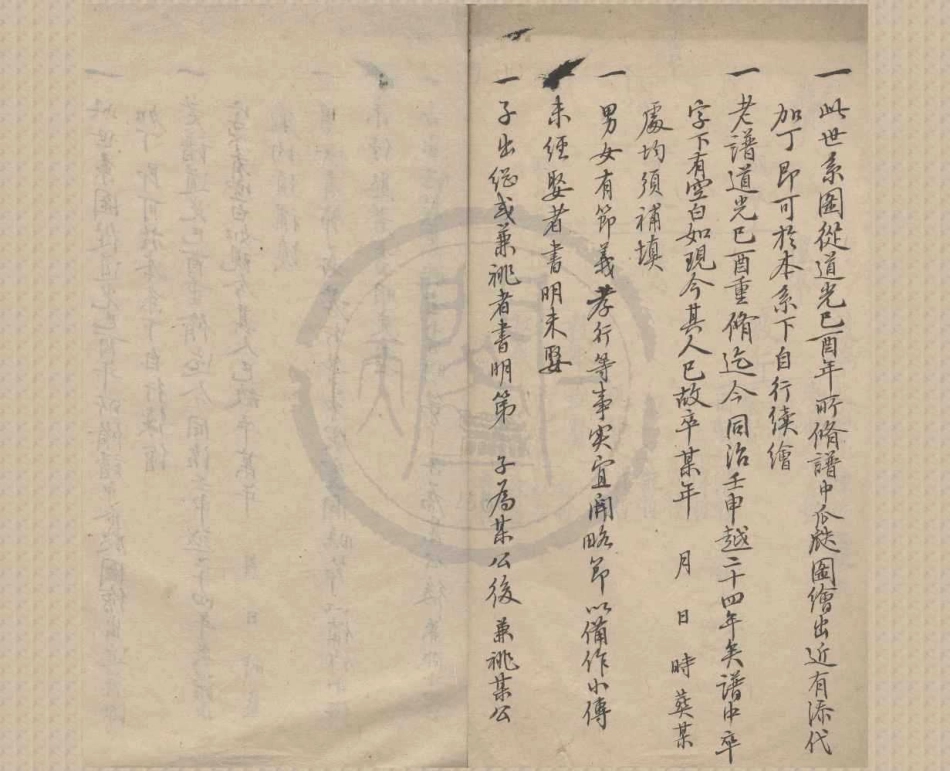 一 此世系圖從道光己酉年所脩譜中瓜瓞圖繪出近有添代
加丁即可於本系下自行續繪
一 老譜道光己酉重脩迄今同治壬申越二十四年矣譜中卒
字下有空白如現今其人已故卒某年 月 日 時葬某
處均須補填
一 男女有節義孝行等事实宜開略節以備作小傳
未經娶者書明未娶
一 子出繼或兼祧者書明第 子為某公後兼祧某公